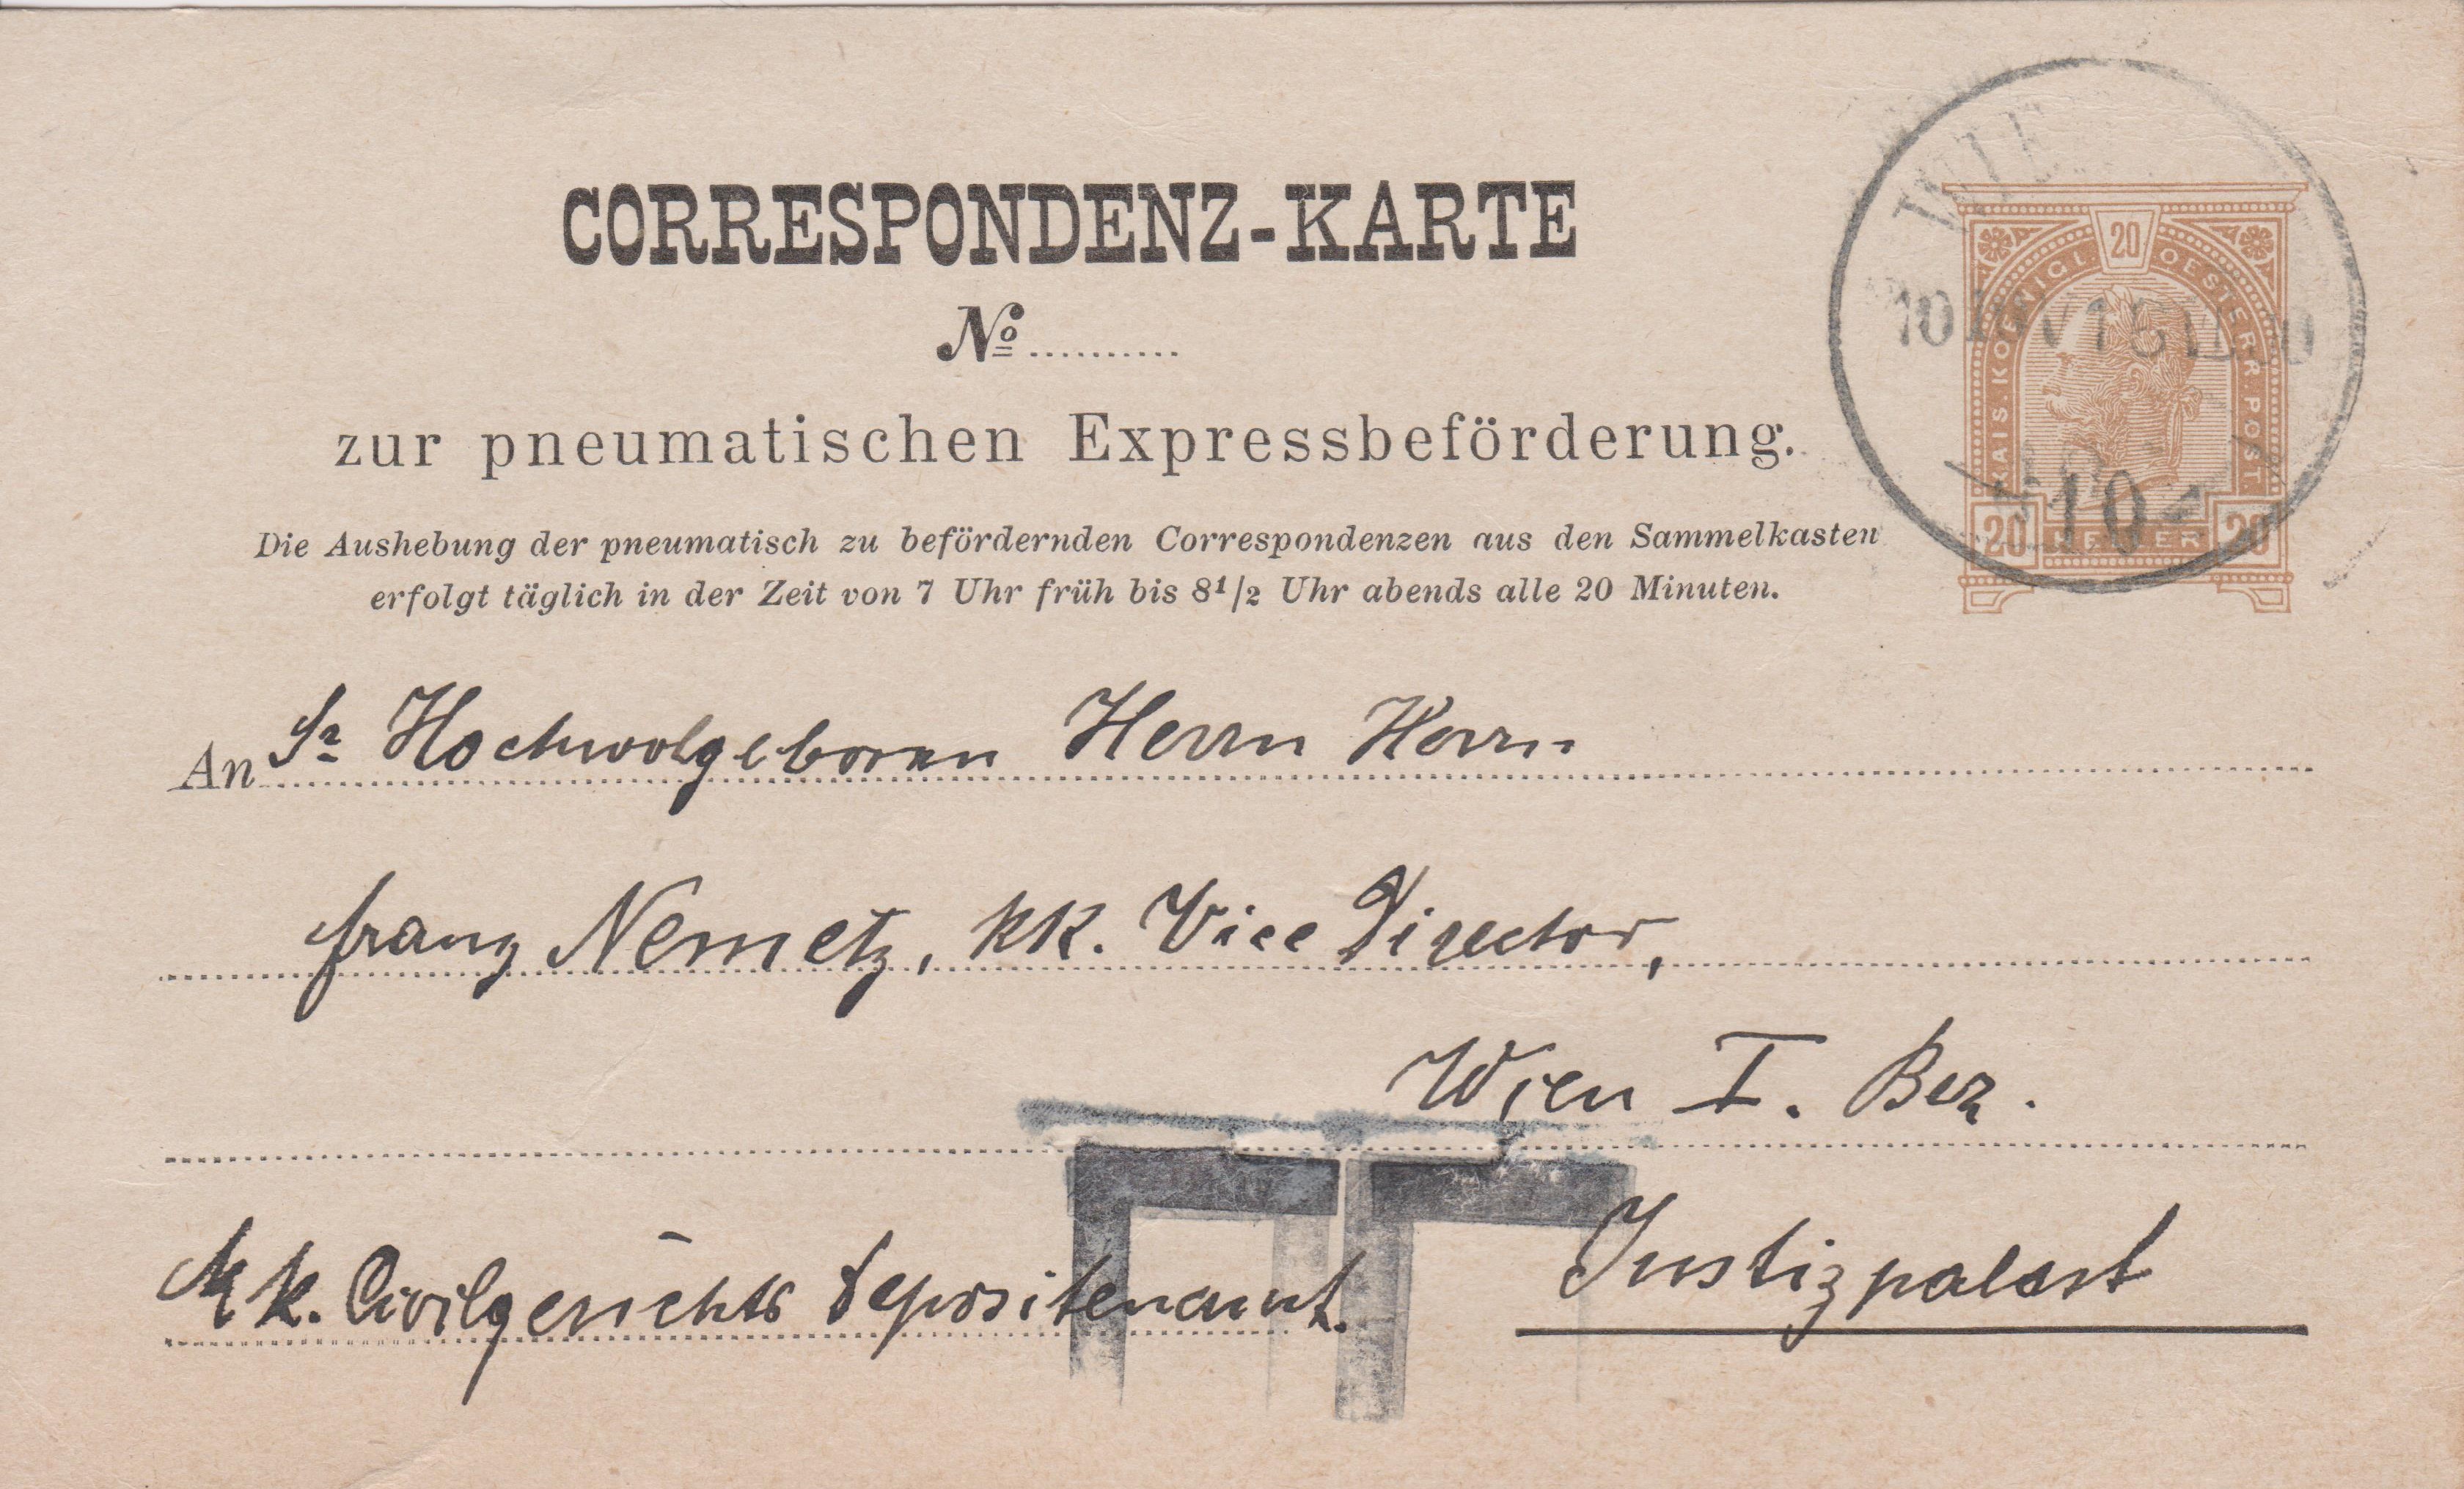 CORRESPONDENZ-KARTE
No
zur pneumatischen Expressbeförderung.
Die Aushebung der pneumatisch zu befördernden Correspondenzen aus den Sammelkasten
erfolgt täglich in der Zeit von 7 Uhr früh bis 8 1/2 Uhr abends alle 20 Minuten.
20
KAIS. KOENIGL. OESTERR. POST.
20 HELLER 20
WIE
10
An Sr Hochwolgeboren Herrn Herrn
Franz Nemetz, KK. Vice Director,
Wien I. Bez.
KK. Civilgerichts Depositenamt. Justizpalast